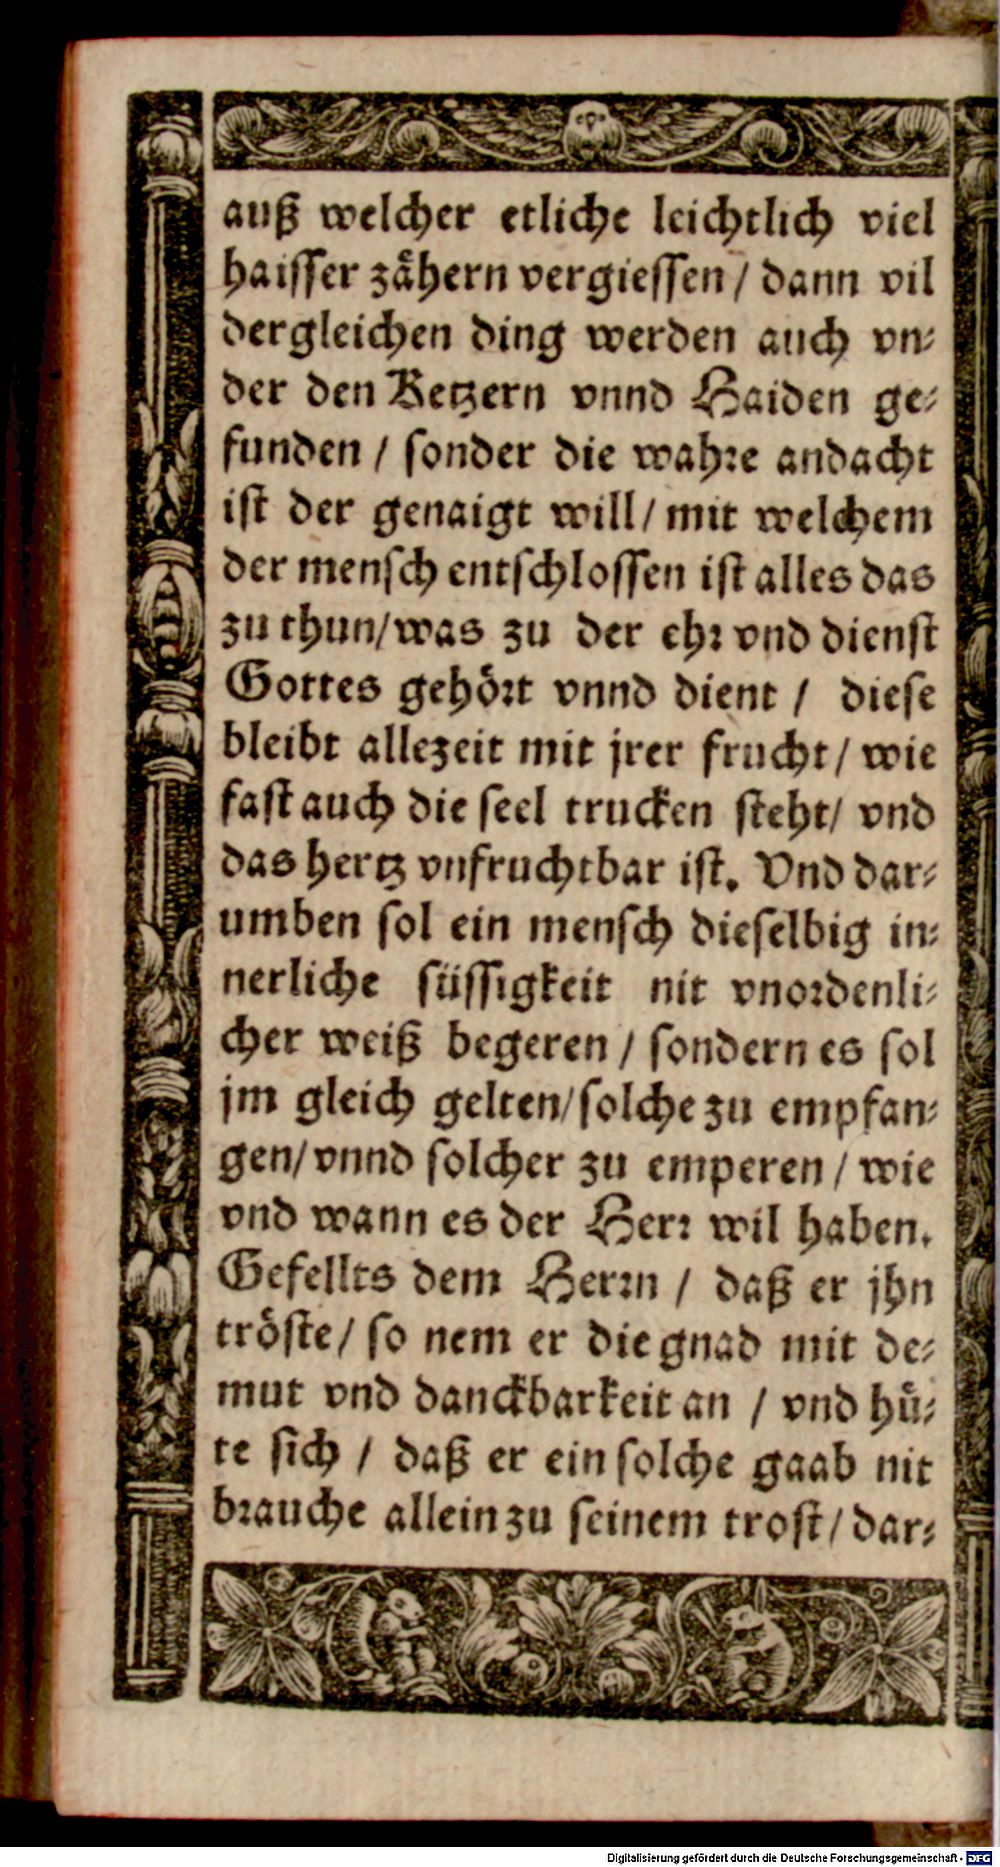 auß welcher etliche leichtlich viel
haisser zåhern vergiessen / dann vil
dergleichen ding werden auch vn⸗
der den Ketzern vnnd Haiden ge⸗
funden / sonder die wahre andacht
ist der genaigt will / mit welchem
der mensch entschlossen ist alles das
zu thun/was zu der ehr vnd dienst
Gottes gehört vnnd dient / diese
bleibt allezeit mit jrer frucht / wie
fast auch die seel trucken steht/ vnd
das hertz vnfruchtbar ist. Vnd dar⸗
umben sol ein mensch dieselbig in⸗
nerliche süssigkeit nit vnordenli⸗
cher weiß begeren / sondern es sol
jm gleich gelten/solche zu empfan⸗
gen/ vnnd solcher zu emperen / wie
vnd wann es der Herr wil haben.
Gefellts dem Herrn / daß er jhn
tröste / so nem er die gnad mit de⸗
mut vnd danckbarkeit an / vnd hů⸗
te sich / daß er ein solche gaab nit
brauche allein zu seinem trost / dar⸗
Digitalisierung gefördert durch die Deutsche Forschungsgemeinschaft - DFG